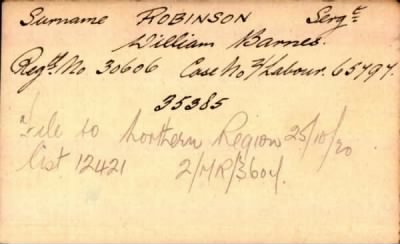 Surname ROBINSON Sergt
William Barnes.
Regtl. No 30606 Case No 3/Labour. 65797.
35385
File to Northern Region 25/10/20
list 12421 2/MR/3604/.